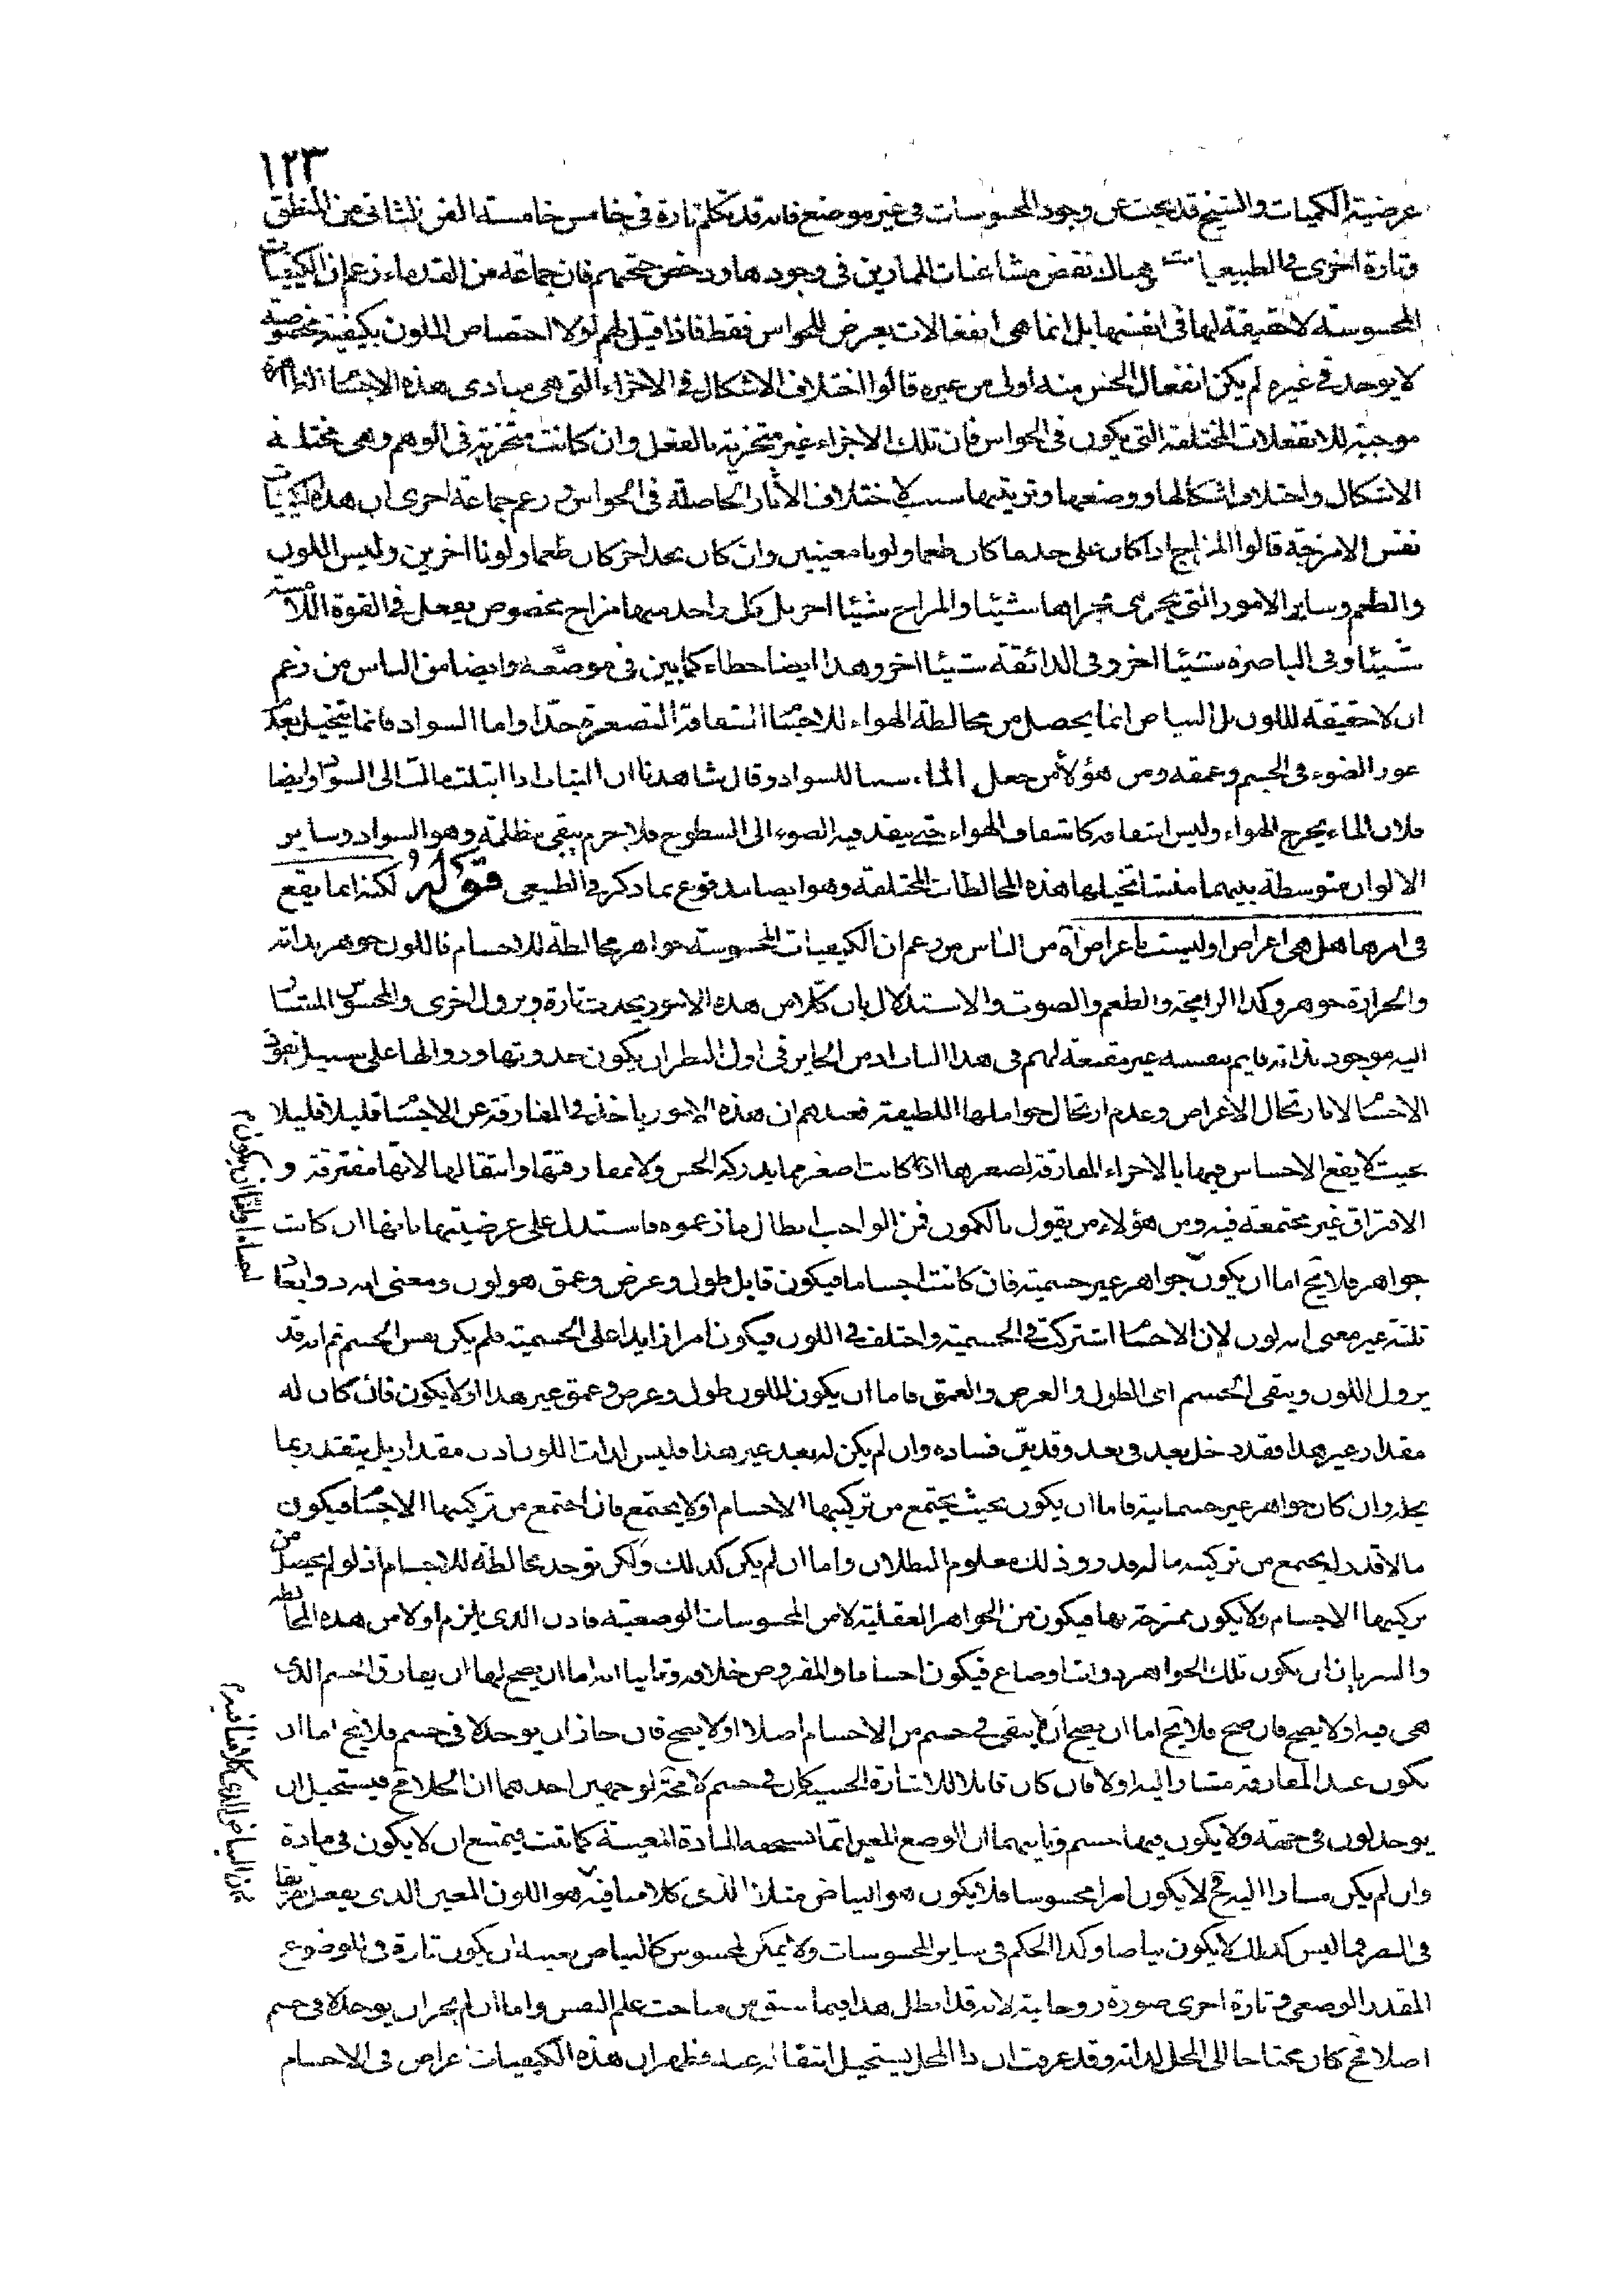 ١٢٣
عرضية الكميات والشيخ قد بحث عن وجود المحسوسات فى غير موضع فانه قد تكلم تارة فى خامس خامسة الفن الثانى من المنطق
وتارة اخرى فى الطبيعيات وهناك نقض مشاغبات الممارين فى وجودها ودحض حجتهم فان جماعة من القدماء زعم ان الكيفيات
المحسوسة لا حقيقة لها فى انفسها بل انما هى انفعالات يعرض للحواس فقط فاذا قيل لهم لولا اختصاص الملون بكيفية مخصوصة
لا يوجد فى غيره لم يكن انفعال الحس منه اولى من غيره قالوا اختلاف الاشكال فى الاجزاء التى هى مبادى هذه الاجسام الظاهرة
موجبة للانفعلات المختلفة التى يكون فى الحواس فان تلك الاجزاء غير متجزية بالفعل وان كانت متجزية فى الوهم وهى مختلفة
الاشكال واختلاف اشكالها ووضعها وترتيبها سبب لاختلاف الآثار الحاصلة فى الحواس وزعم جماعة اخرى ان هذه الكيفيات
نفس الامزجة قالوا المزاج اذا كان على حد ما كان طعما ولونا معينين وان كان بحد اخر كان طعما ولونا اخرين وليس اللون
والطعم وساير الامور التى يجرى مجراها شيئا والمزاج شيئا اخر بل كل واحد منها مزاج مخصوص يفعل فى القوة اللامسة
شيئا وفى الباصرة شيئا اخر وفى الذائقة شيئا اخر وهذا ايضا خطاء كما بين فى موضعه وايضا من الناس من زعم
ان لا حقيقة للون بل البياض انما يحصل من مخالطة الهواء للاجسام الشفافة المتصغرة جدا واما السواد فانما يتخيل بعدم
غور الضوء فى الجسم وعمقه ومن هؤلاء من جعل الماء سببا للسواد وقال شاهدنا ان الثياب اذا ابتلت مالت الى السواد وايضا
فلان الماء يخرج الهواء وليس اشفافه كاشفاف الهواء حتى ينفذ فيه الضوء الى السطوح فلا جرم يبقى مظلمة وهو السواد وساير
الالوان متوسطة بينهما منشا تخيلها هذه المخالطات المختلفة وهو ايضا مدفوع بما ذكر فى الطبيعى قوله لكنه انما يقع
فى امرها هل هى اعراض او ليست باعراض آه من الناس من زعم ان الكيفيات المحسوسة جواهر مخالطة للاجسام فاللون جوهر بذاته
والحرارة جوهر وكذا الرايحة والطعم والصوت والاستدلال بان كلا من هذه الامور يحدث تارة ويزول اخرى والمحسوس المشار
اليه موجود بذاته قايم بنفسه غير مقنعة لهم فى هذا الباب اذ من الجايز فى اول النظر ان يكون حدوثها وزوالها على سبيل تفرق
الاجسام لا بارتحال الاعراض وعدم ارتحال حواملها اللطيفة فعندهم ان هذه الامور ياخذ فى المفارقة عن الاجسام قليلا قليلا
بحيث لا يقع الاحساس فيها بالاجزاء المفارقة لصغرها اذا كانت اصغر مما يدركه الحس ولا بمفارقتها وانتقالها لانها مفترقة و
الافتراق غير مجتمعة فيه ومن هؤلاء من يقول بالكمون فمن الواجب ابطال ما زعموه فاستدل على عرضيتها بانها ان كانت
جواهر فلا يخ اما ان يكون جواهر غير جسمية فان كانت اجساما فيكون قابل طول وعرض وعمق هو لون ومعنى انه ذو ابعاد
ثلثة غير معنى انه لون لان الاجسام اشتركت فى الجسمية واختلف فى اللون فيكون امرا زايدا على الجسمية فلم يكن نفس الجسم ثم انه قد
يزول اللون ويبقى الجسم اى الطول والعرض والعمق فاما ان يكون للون طول وعرض وعمق غير هذا او لا يكون فان كان له
مقدار غير هذا فقد دخل بعد فى بعد وقد بين فساده وان لم يكن له بعد غير هذا فليس لذات اللون اذن مقدار بل يتقدر بما
يحله وان كان جواهر غير جسمانية فاما ان يكون بحيث يجتمع من تركيبها الاجسام او لا يجتمع فان اجتمع من تركيبها الاجسام فيكون
ما لا قدر له يجتمع من تركيبه ما له قدر وذلك معلوم البطلان واما ان لم يكن كذلك ولكن توجد مخالطة للاجسام اذ لو لم يحصل من
تركيبها الاجسام ولا يكون ممتزجة بها فيكون من الجواهر العقلية لا من المحسوسات الوضعية فاذن الذى يلزم اولا من هذه المخالطة
والسريان ان يكون تلك الجواهر ذوات اوضاع فيكون اجساما والمفروض خلافه وثانيا انه اما ان يصح لها ان يفارق الجسم الذى
هى فيه او لا يصح فان صح فلا يخ اما ان يصح ان يبقى فى جسم من الاجسام اصلا او لا يصح فان جاز ان يوجد لا فى جسم فلا يخ اما ان
يكون عند المفارقة مشارا اليه او لا فان كان قابلا للاشارة الحسية كان فى جسم لا محة لوجهين احدهما ان الخلا مح فيستحيل ان
يوجد لون فى جهة ولا يكون فيها جسم وثانيهما ان الوضع المعين انما تستحقه المادة المعينة كما ثبت فيمتنع ان لا يكون فى مادة
وان لم يكن مشارا اليه فح لا يكون امرا محسوسا فلا يكون هو البياض مثلا الذى كلامنا فيه هو اللون المعين الذى يفعل تفريقا
فى البصر فما ليس كذلك لا يكون بياضا وكذا الحكم فى ساير المحسوسات ولا يمكن لمحسوس كالبياض بعينه ان يكون تارة فى الموضوع
المقدر الوضعى وتارة اخرى صورة روحانية لانه قد ابطل هذا فيما سبق من مباحث علم النفس واما ان لم يجز ان يوجد لا فى جسم
اصلا فح كان محتاجا الى المحل لذاته وقد عرفت ان ذا المحل يستحيل انتقاله عنه فظهر ان هذه الكيفيات اعراض فى الاجسام